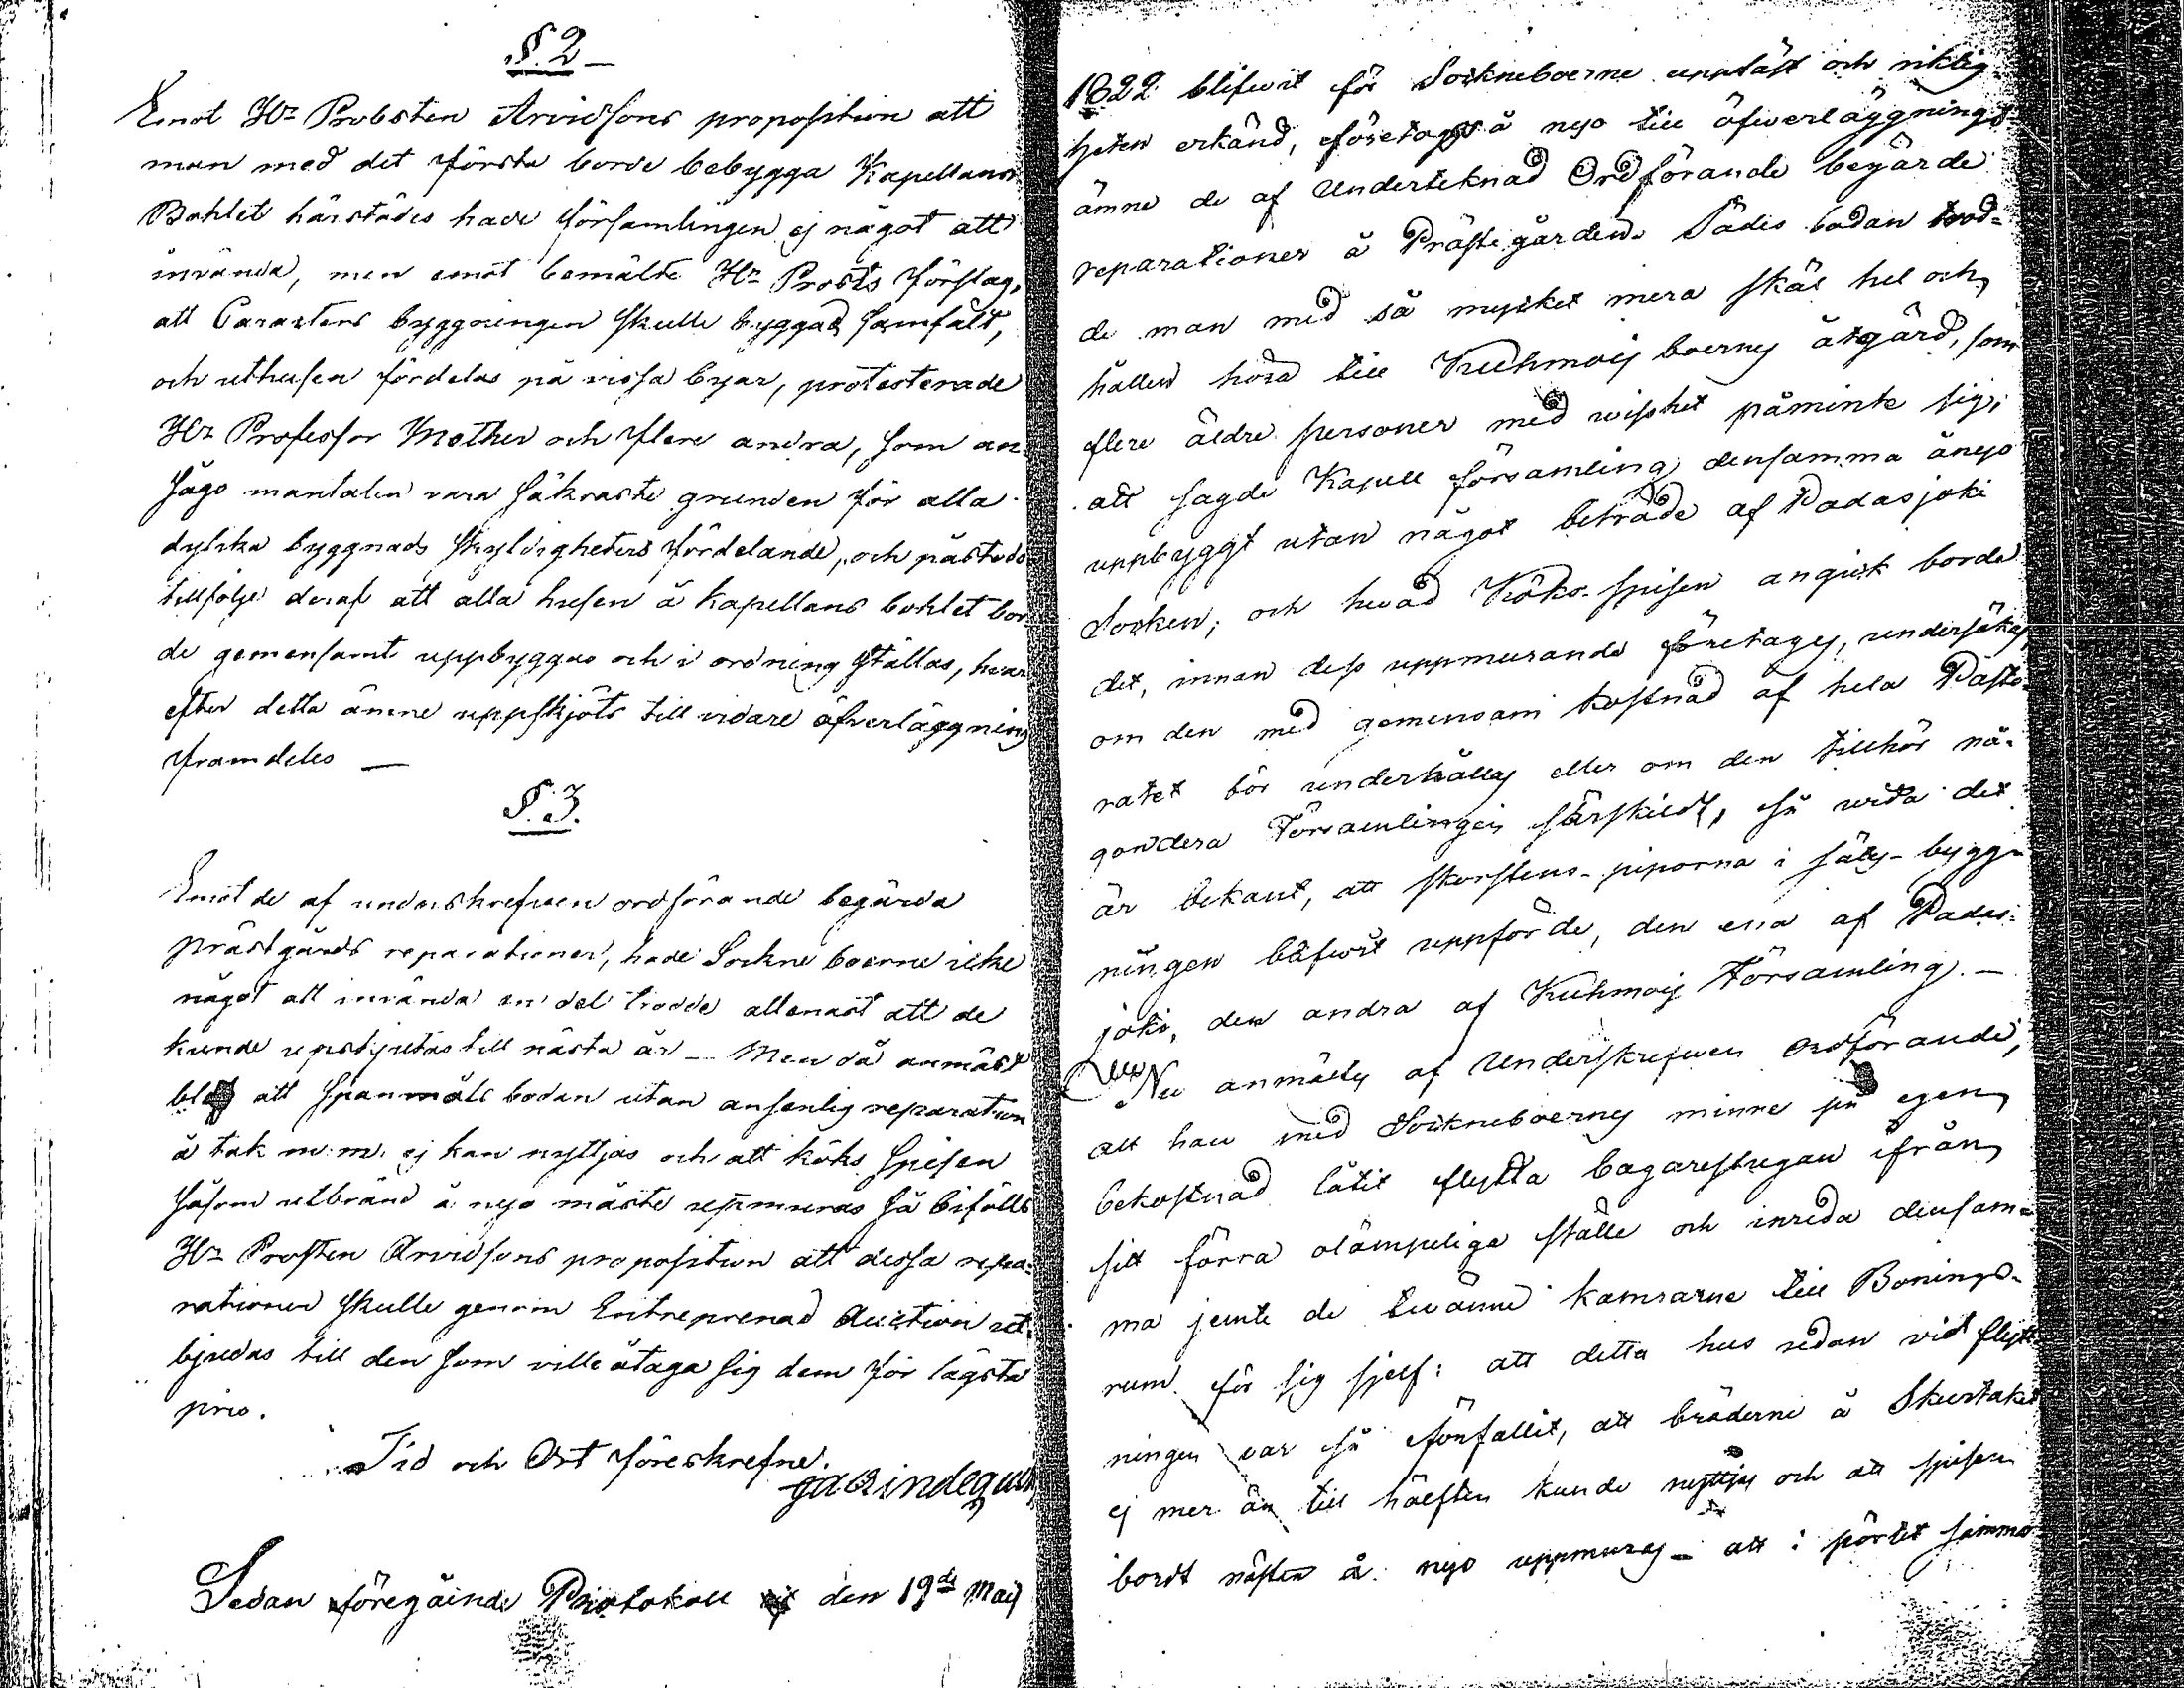 §. 2
Emot Hr Probsten Arvidsons proposition att
man med det första borde bebygga Kapellans
Bohlet härstädes hade församlingen ej något att
invända, men emot bemälte Hr Prosts förslag,
att Caracters byggningen skulle byggas samfält,
och uthusen fördelas på vissa byar, protesterade
Hr Professor Mother och flere andra, som an-
sågo mantalen vara säkraste grunden för alla
dylika byggnads skyldigheters fördelande, och påstodo
tillfölje deraf att alla husen å kapellans bohlet bor-
de gemensamt uppbyggas och i ordning ställas, hvar-
efter detta ämne uppskjöts till vidare öfverläggning
framdeles —
§. 3.
Emot de af underskrefven ordförande begärda
prästgårds reparationer, hade Sockne boerne icke
något att invända en del trodde allenast att de
kunde uppskjutas till nästa år — Men då anmäldt
blef att spanmåls bodan utan ansenlig reparation
å tak m. m. ej kan nyttjas och att köks spisen
såsom utbränd å nyo måste uppmuras så bifölls
Hr Prosten Arvidsons proposition att dessa repa-
rationer skulle genom Entreprenad Auction ut-
bjudas till den som ville åtaga sig dem för lägsta
pris.
Tid och Ort föreskrefne.
Sedan föregående Protokoll af den 19de Maij
1822 blifwit för Sockneboerne uppläst och riktig-
heten erkänd, företogs å nyo till öfwerläggnings-
ämne de af Undertecknad Ordförande begärde
reparationer å Prästegården. Sädes bodan trod-
de man med så mycket mera skäl hel och
hållen höra till Kuhmoij boernes åtgärd, som
flere äldre personer med wisshet påminte sig,
att sagde Kapell församling densamma ånyo
uppbyggt utan något beträde af Padasjoki
Socken; och hwad Köks-spisen angick borde
det, innan dess uppmurande företages, undersökas,
om den med gemensam kostnad af hela Pasto-
ratet bör underhållas eller om den tillhör nå-
gondera Församlingen särskildt, så wida det
är bekant, att skorstens-piporna i sätes-bygg-
ningen blifwit uppförde, den ena af Padas-
joki, den andra af Kuhmoij Församling. —
Nu anmältes af Underskrefwen Ordförande,
att han med Sockneboernes minne på egen
bekostnad låtit flytta bagarestugan ifrån
sitt förra olämpeliga ställe och inreda densam-
ma jemte de twänne kamrarne till Bonings-
rum för sig sjelf: att detta hus redan vid flytt-
ningen var så förfallit, att bräderne å Skurtaket
ej mer än till hälften kunde nyttjas och att spisen
bordt nästen å nyo uppmuras — att i pörtet samma